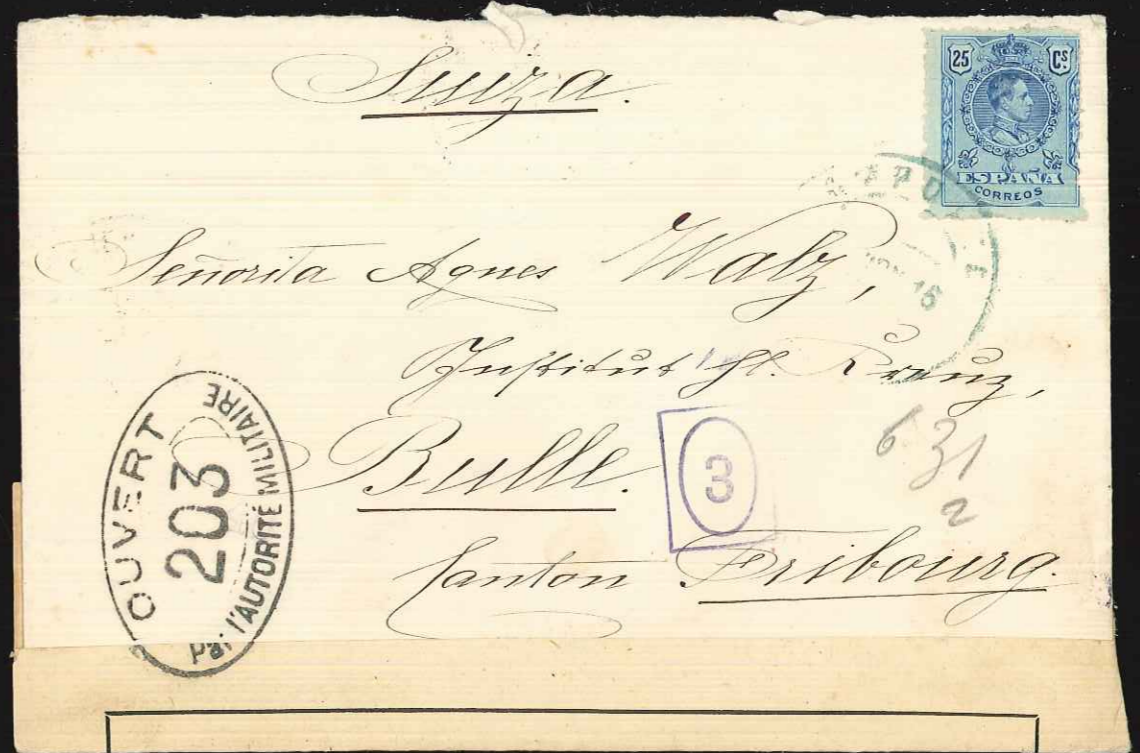 Suiza.
25 Cs
ESPAÑA
CORREOS
16
Señorita Agnes Walz,
Institut hl. Kreuz,
Bulle.
Canton Fribourg.
OUVERT
203
Par l'AUTORITÉ MILITAIRE
3
631
2